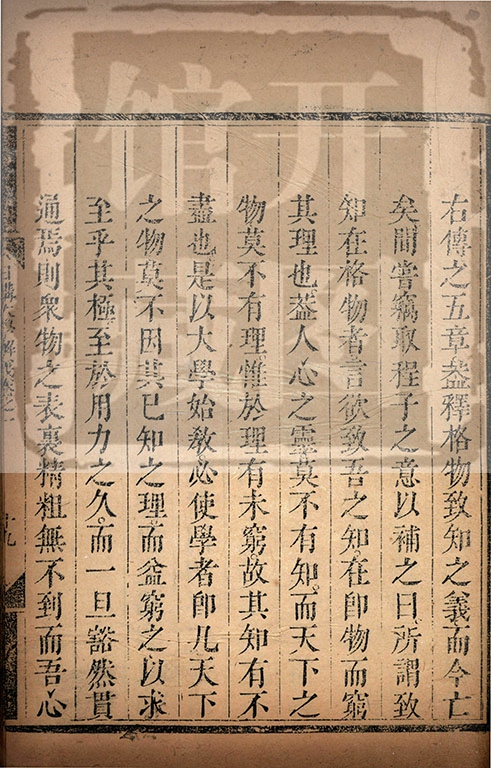 右傳之五章葢釋格物致知之義而今亡
矣間嘗竊取程子之意以補之曰所謂致
知在格物者言欲致吾之知。在卽物而窮
其理也葢人心之靈莫不有知。而天下之
物莫不有理惟於理有未窮。故其知有不
盡也是以大學始敎必使學者卽凡天下
之物莫不因其已知之理而益窮之以求
至乎其極至於用力之久。而一旦豁然貫
通焉則衆物之表裏精粗無不到而吾心
十九